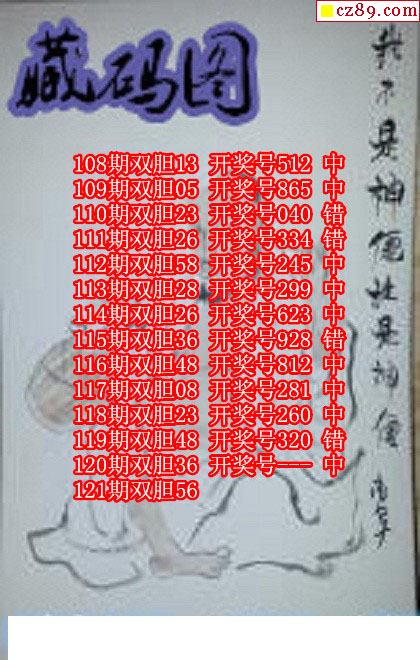 cz89.com
藏码图
108期双胆13 开奖号512 中
109期双胆05 开奖号865 中
110期双胆23 开奖号040 错
111期双胆26 开奖号334 错
112期双胆58 开奖号245 中
113期双胆28 开奖号299 中
114期双胆26 开奖号623 中
115期双胆36 开奖号928 错
116期双胆48 开奖号812 中
117期双胆08 开奖号281 中
118期双胆23 开奖号260 中
119期双胆48 开奖号320 错
120期双胆36 开奖号--- 中
121期双胆56
我不是神僊谁是神僊